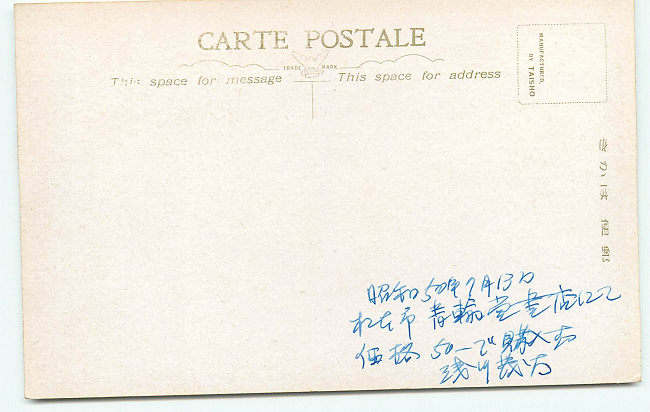 CARTE POSTALE
TRADE MARK
This space for message
This space for address
MANUFACTURED.
BY TAISHO
きかは便郵
昭和50年7月13日
青輪堂書店にて
価格 50.-で購入す